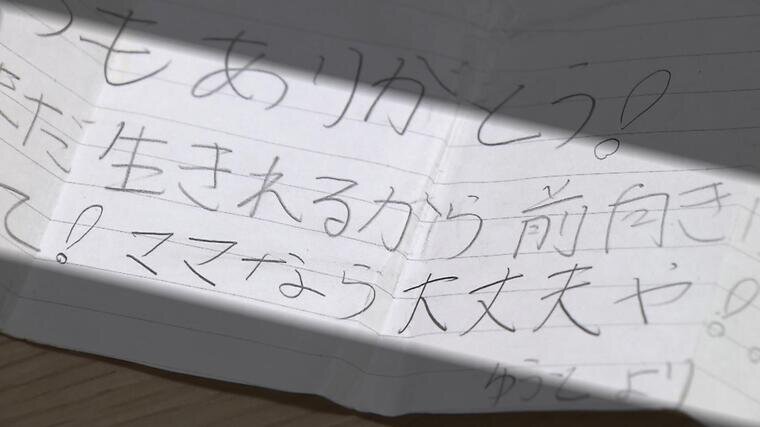 つもありがとう!
まだ生きれるから前向き
て!ママなら大丈夫や!
ゆうとより